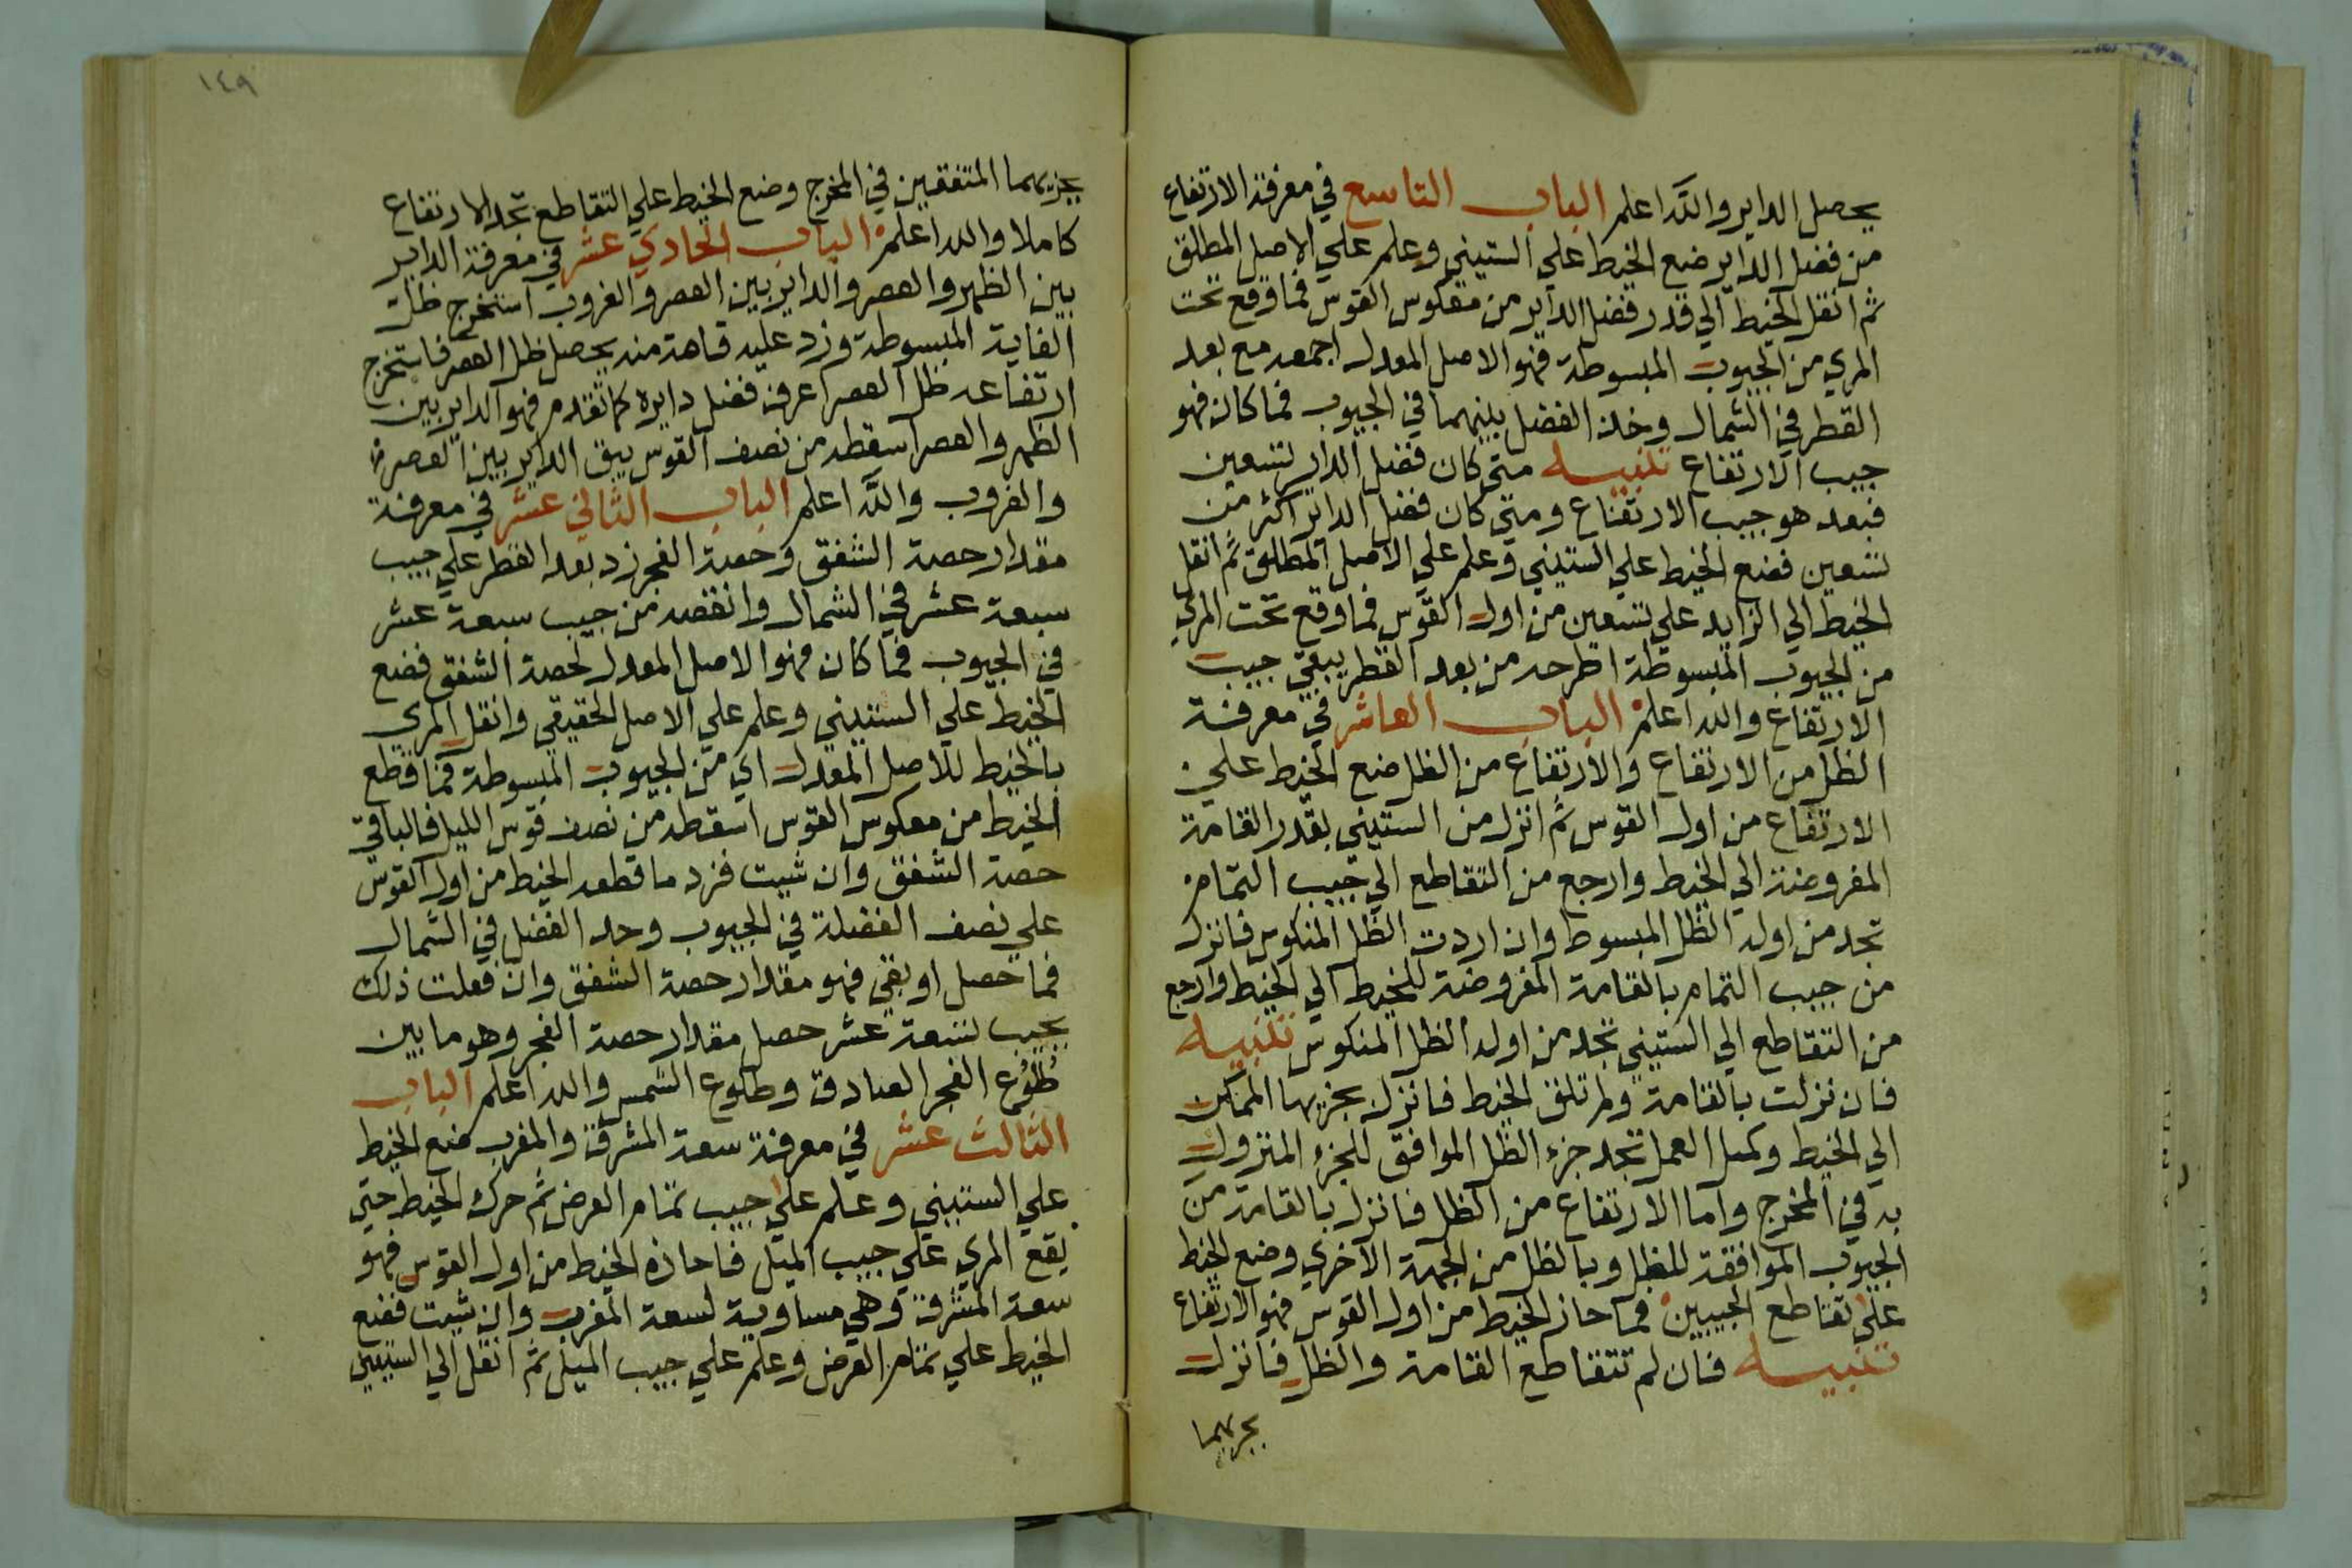 يحصل الداير والله اعلم الباب التاسع في معرفة الارتفاع
من فضل الداير ضع الخيط علي الستيني وعلم علي الاصل المطلق
ثم انقل الخيط الي قدر فضل الداير من معكوس القوس فما وقع تحت
المري من الجيوب المبسوطة فهو الاصل المعدل اجمعه مع بعد
القطر في الشمال وخذ الفضل بينهما في الجيوب فما كان فهو
جيب الارتفاع تنبيه متي كان فضل الداير تسعين
فبعد هو جيب الارتفاع ومتي كان فضل الداير اكثر من
تسعين فضع الخيط علي الستيني وعلم علي الاصل المطلق ثم انقل
الخيط الي الزايد علي تسعين من اول القوس فما وقع تحت المري
من الجيوب المبسوطة اطرحه من بعد القطر يبقي جيب
الارتفاع والله اعلم الباب العاشر في معرفة
الظل من الارتفاع والارتفاع من الظل ضع الخيط علي
الارتفاع من اول القوس ثم انزل من الستيني بقدر القامة
المفروضة الي الخيط وارجع من التقاطع الي جيب التمام
تجد من اوله الظل المبسوط وان اردت الظل المنكوس فانزل
من جيب التمام بالقامة المفروضة للخيط الي الخيط وارجع
من التقاطع الي الستيني تجد من اوله الظل المنكوس تنبيه
فان نزلت بالقامة ولم تلق الخيط فانزل بجزيها الممكن
الي الخيط وكمل العمل تجد جزء الظل الموافق للجزء المنزول
به في المخرج واما الارتفاع من الظل فانزل بالقامة من
الجيوب الموافقة للظل وبالظل من الجهة الاخري وضع الخيط
علي تقاطع الجيبين فما حاز الخيط من اول القوس فهو الارتفاع
تنبيه فان لم تتقاطع القامة والظل فانزل
بجزيهما
١٤٩
بجزيهما المتفقين في المخرج وضع الخيط علي التقاطع تجد الارتفاع
كاملا والله اعلم الباب الحادي عشر في معرفة الداير
بين الظهر والعصر والداير بين العصر والغروب استخرج ظل
الغاية المبسوطة وزد عليه قامة منه يحصل ظل العصر فاستخرج
ارتفاعه ظل العصر اعرف فضل دايره كما تقدم فهو الداير بين
الظهر والعصر اسقطه من نصف القوس يبق الداير بين العصر
والغروب والله اعلم الباب الثاني عشر في معرفة
مقدار حصة الشفق وحصة الفجر زد بعد القطر علي جيب
سبعة عشر في الشمال وانقصه من جيب سبعة عشر
في الجيوب فما كان فهو الاصل المعدل لحصة الشفق فضع
الخيط علي الستيني وعلم علي الاصل الحقيقي وانقل المري
بالخيط للاصل المعدل اي من الجيوب المبسوطة فما قطع
الخيط من معكوس القوس اسقطه من نصف قوس الليل فالباقي
حصة الشفق وان شيت فزد ما قطعه الخيط من اول القوس
علي نصف الفضلة في الجيوب وخذ الفضل في الشمال
فما حصل او بقي فهو مقدار حصة الشفق وان فعلت ذلك
بجيب تسعة عشر حصل مقدار حصة الفجر وهو ما بين
طلوع الفجر الصادق وطلوع الشمس والله اعلم الباب
الثالث عشر في معرفة سعة المشرق والمغرب ضع الخيط
علي الستيني وعلم علي جيب تمام العرض ثم حرك الخيط حتي
يقع المري علي جيب الميل فما حاذه الخيط من اول القوس فهو
سعة المشرق وهي مساوية لسعة المغرب وان شيت فضع
الخيط علي تمام العرض وعلم علي جيب الميل ثم انقل الي الستيني